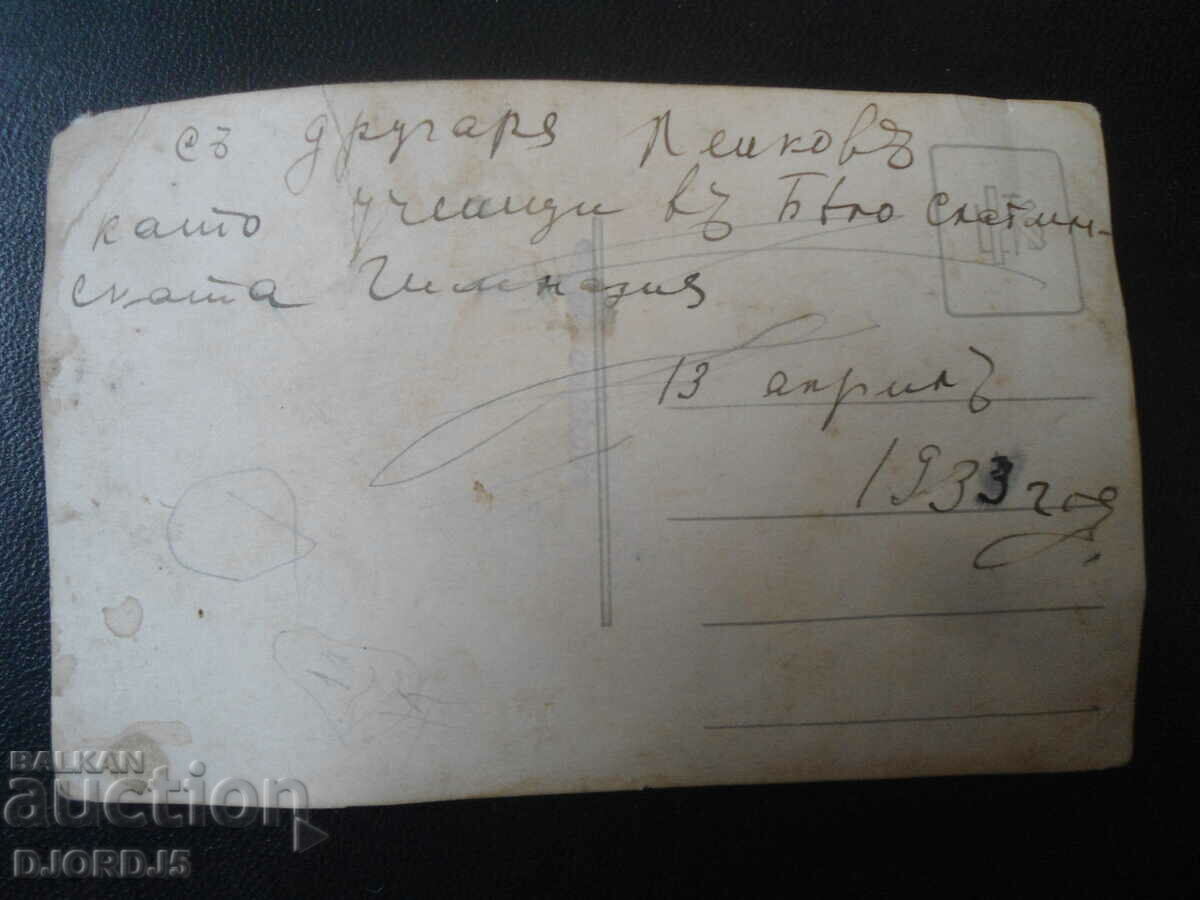 съ другаря
като ученици въ Бѣло Слатин-
ската Гимназия
13 априлъ
1933 год.
BALKAN
auction
DJORDJ5